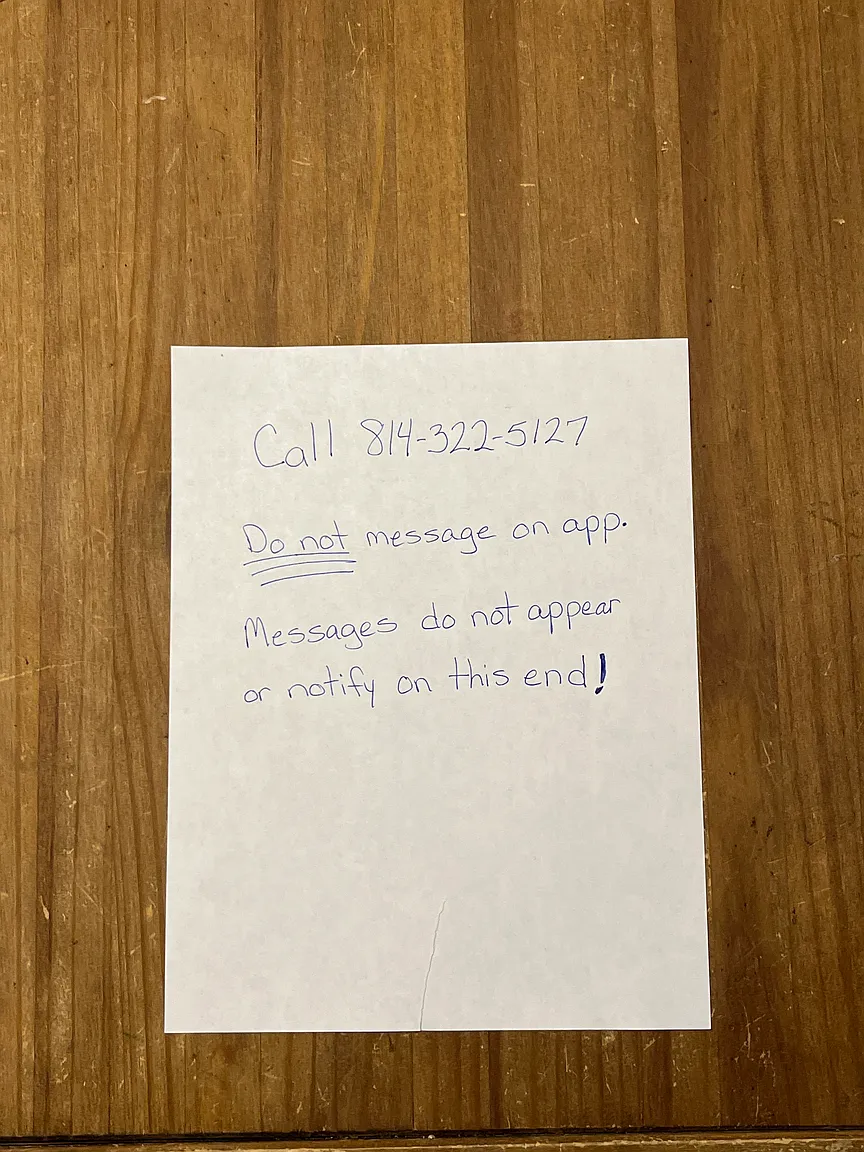 Call 814-322-5127
Do not message on app.
Messages do not appear
or notify on this end!